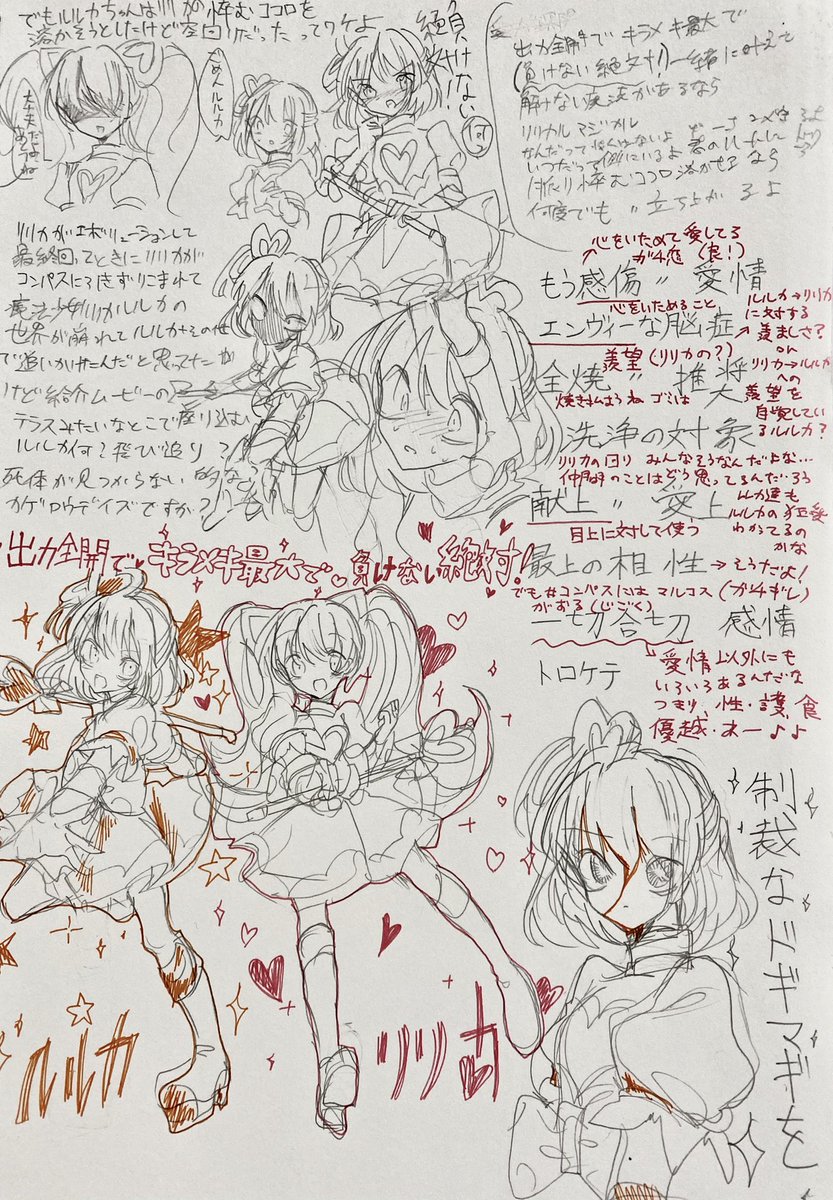 でもルルカちゃんはリリカの悴むココロを
溶かそうとしたけど空回りだったってワケよ
負けない
絶対!
何っ
ごめんルルカ
大丈夫だからね
出力全開でキラメキ最大で
(負けない絶対!)一緒に叶えて
解けない魔法があるなら
リリカル マジカル
なんだって怖くはないよ
いつだって側にいるよ 君のハートに
悴むココロ溶かせるなら
何度でも〃立ち上がるよ
リリカがエボリューションして
最終回ってときにリリカが
コンパスに引きずりこまれて
魔法少女リリカルルカの
世界が崩れてルルカもその世
で追いかけたんだと思ってたが
けど紹介ムービーの
テラスみたいなとこで座り込む
ルルカ何?飛び追り?
死体が見つからない的な
カゲロウデイズですか?
心をいためて愛してる
ガチ恋(良!)
もう感傷〃愛情
心をいためること
エンヴィーな脳症
ルルカ→リリカ
に対する
羨ましさ?
or
リリカ→ルルカ
への
羨望を
自覚してい
るルルカ?
羨望(リリカの?)
全焼〃推奨
焼き払おうね ゴミは
洗浄の対象
リリカの回り みんなそうなんだよな…
仲間のことはどう思ってるんだろう
献上〃愛上
目上に対して使う
ルルカの狂愛
わかてるの
かな
最上の相性→そうだよ!
でも#コンパスには マルコス(ガチ推し)
がおる(じごく)
一切合切 感情
愛情以外にも
いろいろあるんだな
つまり、性・護・食
優越・オー♪♪
トロケテ
出力全開で キラメキ最大で 負けない絶対!
ルルカ
リリカ
制裁なドギマギを